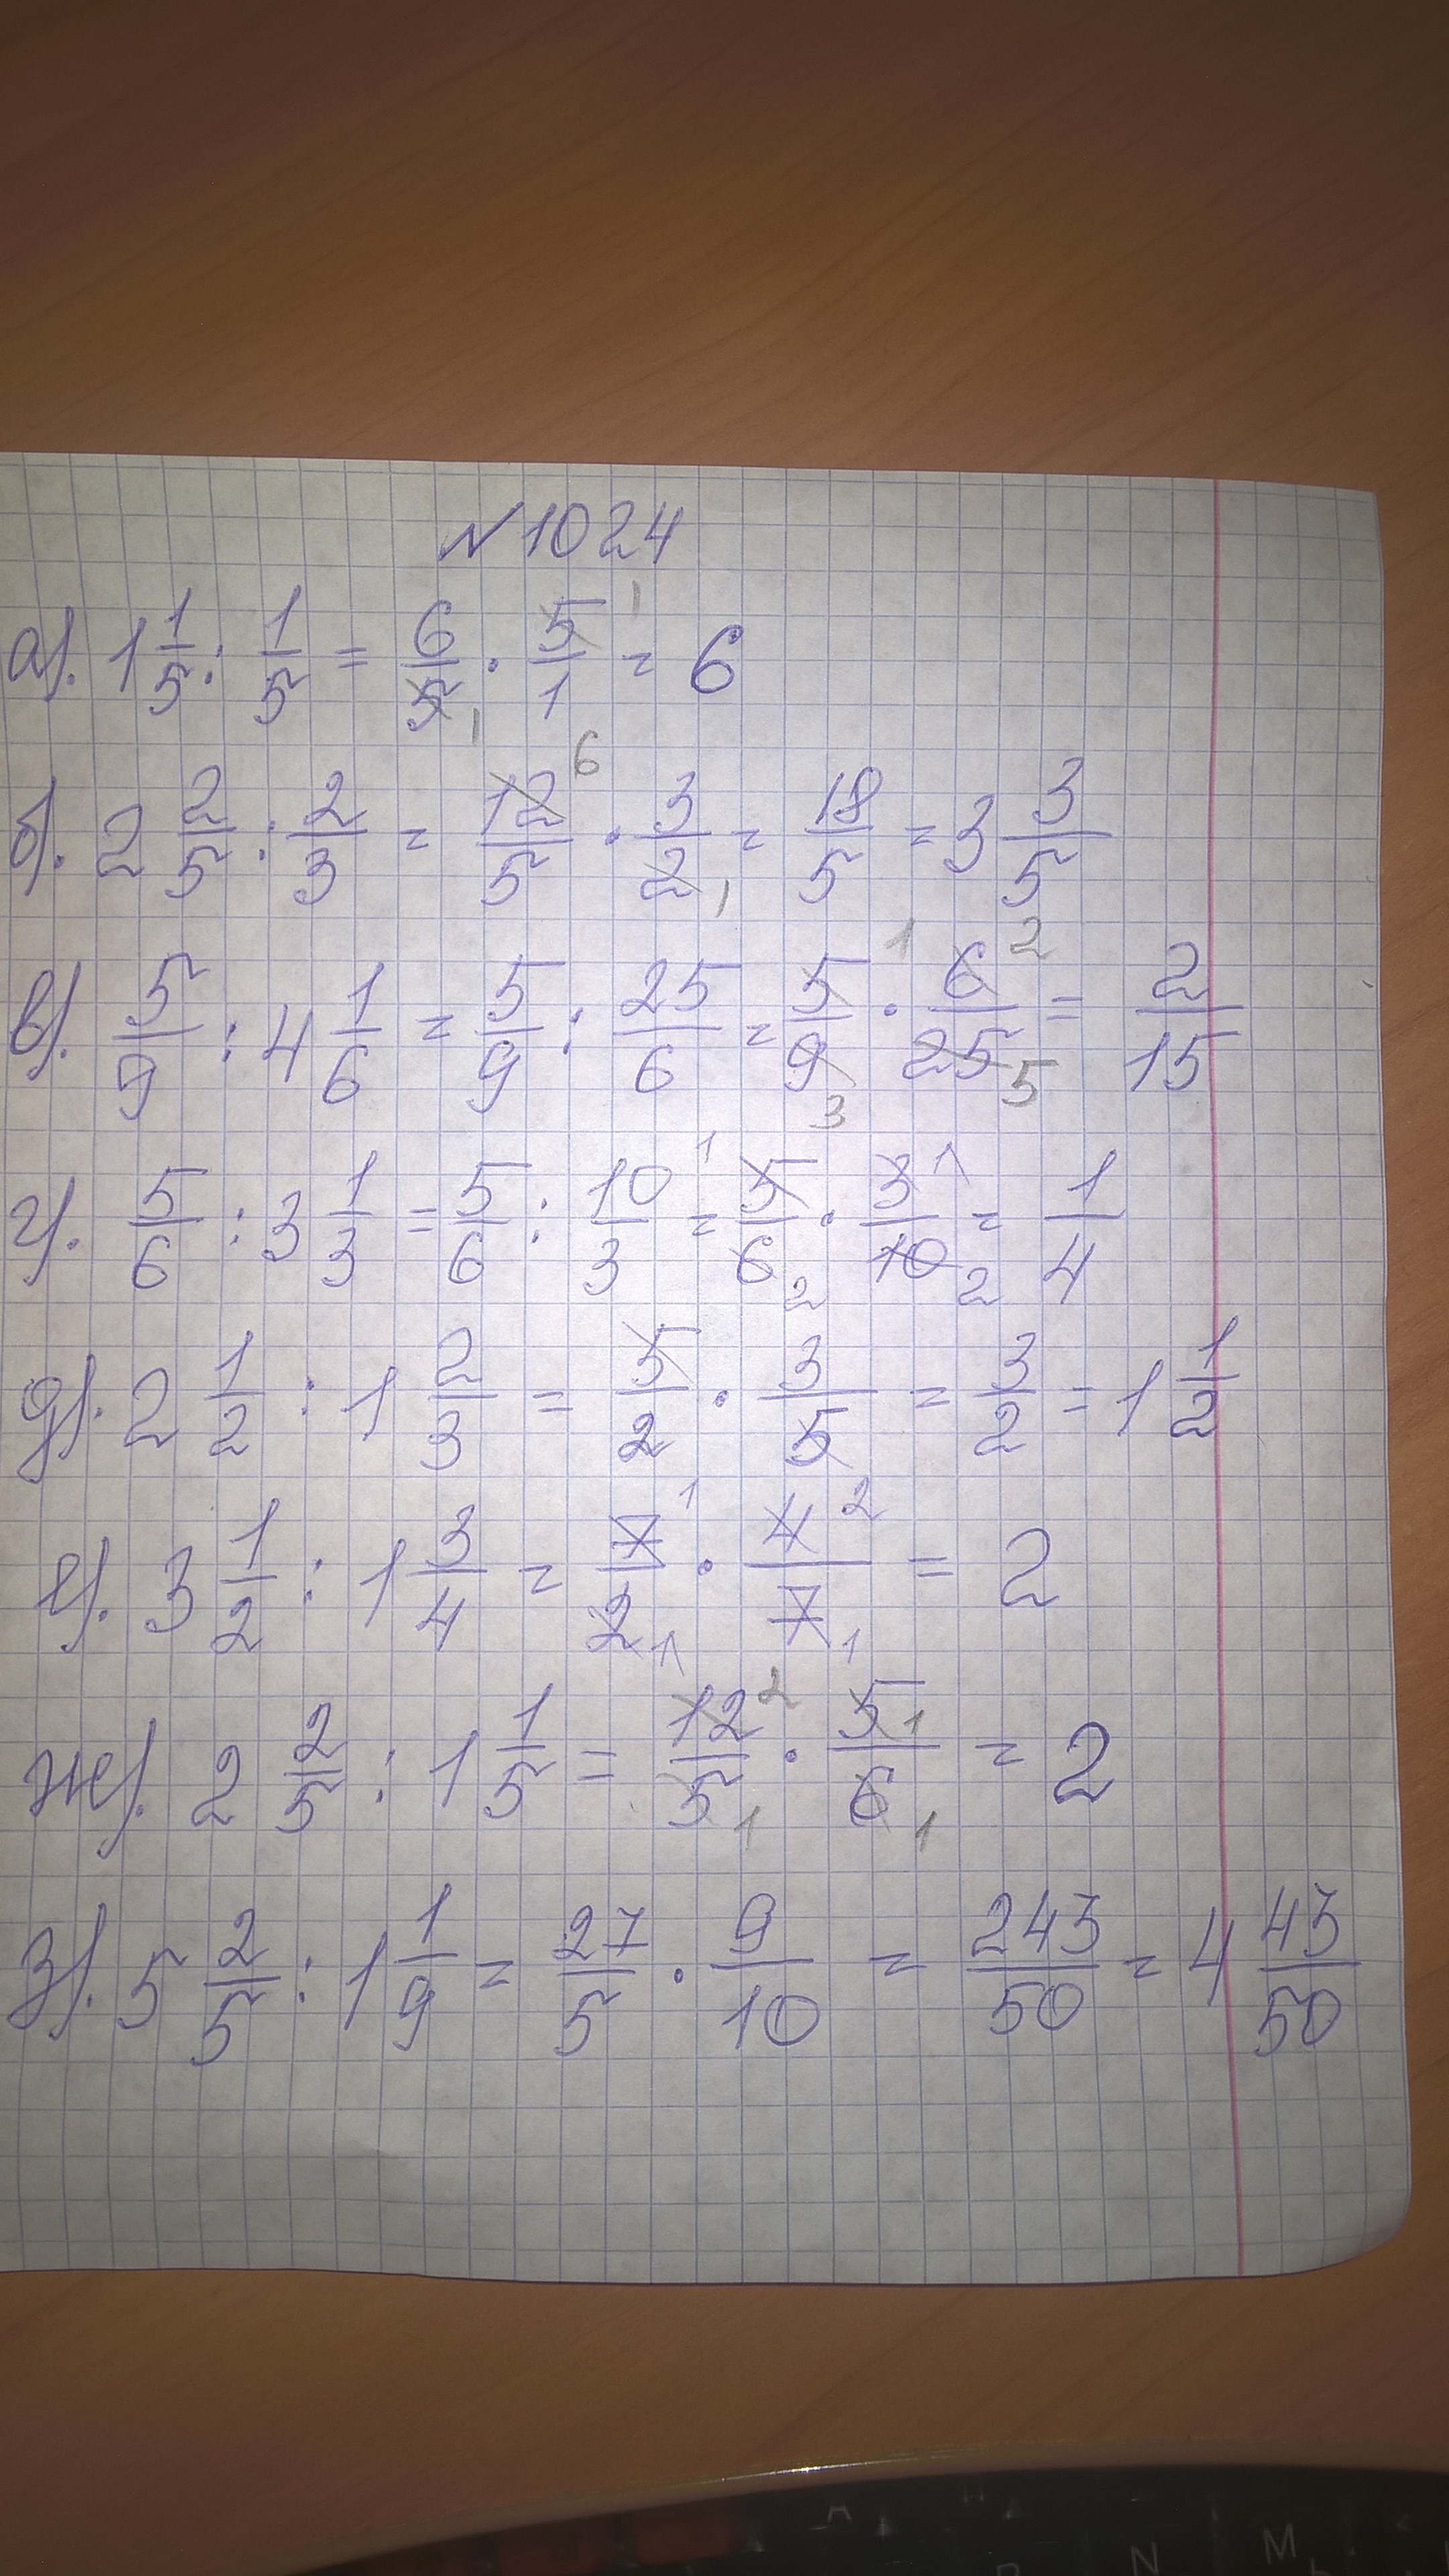 №1024
а). 1 1/5 : 1/5 = 6/5 1 · 5/1 1 = 6
б). 2 2/5 : 2/3 = 12/5 6 · 3/2 1 = 18/5 = 3 3/5
в). 5/9 : 4 1/6 = 5/9 : 25/6 = 5/9 1 3 · 6/25 2 5 = 2/15
г). 5/6 : 3 1/3 = 5/6 : 10/3 = 1 5/6 2 · 3/10 1 2 = 1/4
д). 2 1/2 : 1 2/3 = 5/2 · 3/5 = 3/2 = 1 1/2
е). 3 1/2 : 1 3/4 = 7/2 1 1 · 4/7 2 1 = 2
ж). 2 2/5 : 1 1/5 = 12/5 2 1 · 5/6 1 1 = 2
з). 5 2/5 : 1 1/9 = 27/5 · 9/10 = 243/50 = 4 43/50
N M